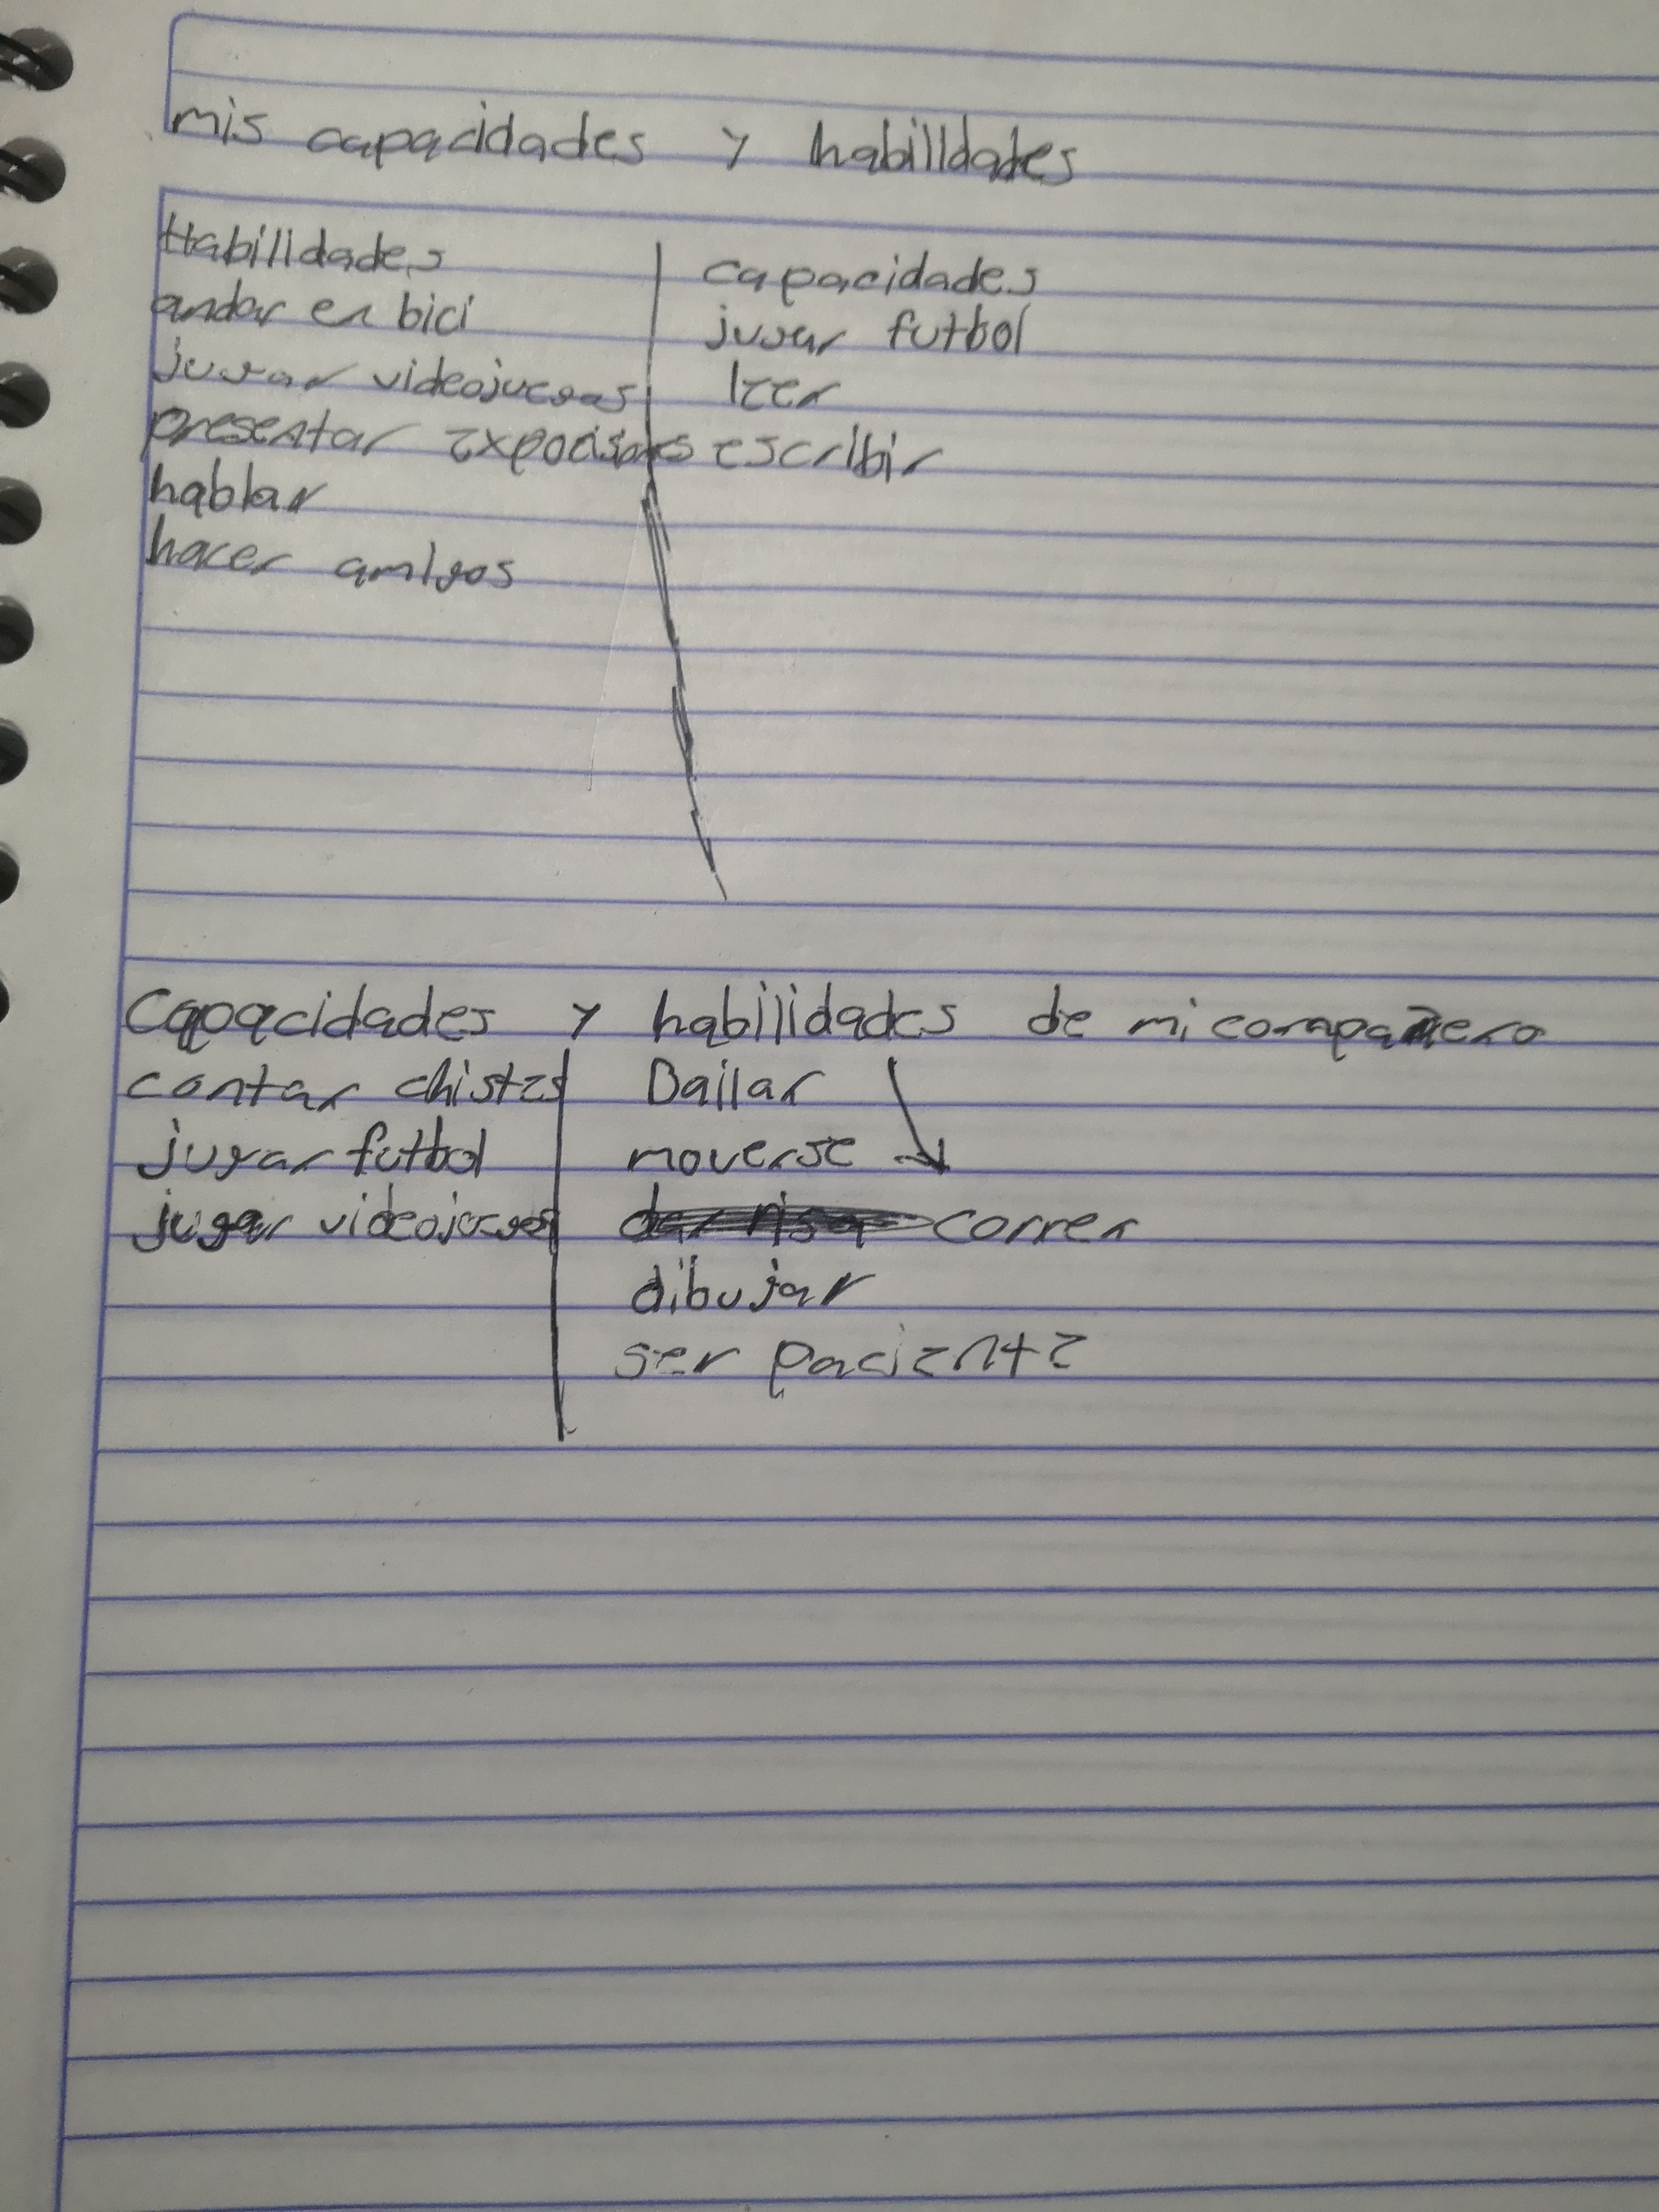 mis capacidades y habilldades
Habilldades capacidades
andar en bici jugar futbol
jugar videojuegos leer
presentar expocisones escribir
hablar
hacer amigos
Capacidades y habilidades de mi compañero
contar chistes Bailar
jugar futbol moverse
jugar videojuegos dar risa correr
dibujar
ser paciente